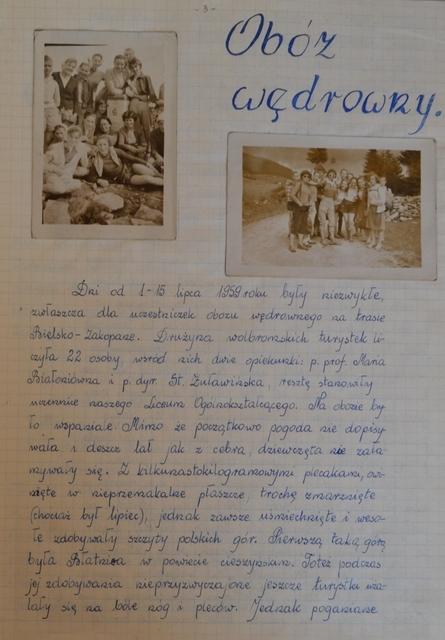 - 3 -
Obóz
wędrowny.
Dni od 1-15 lipca 1959 roku były niezwykłe,
zwłaszcza dla uczestniczek obozu wędrownego na trasie
Bielsko-Zakopane. Drużyna wolbromskich turystek li-
czyła 22 osoby, wśród nich dwie opiekunki: p. prof. Maria
Białoniówna i p. dyr. St. Żuławińska, resztę stanowiły
uczennice naszego Liceum Ogólnokształcącego. Na obozie by-
ło wspaniale. Mimo że początkowo pogoda nie dopisy-
wała i deszcz lał jak z cebra, dziewczęta nie zała-
mywały się. Z kilkunastokilogramowymi plecakami, owi-
nięte w nieprzemakalne płaszcze, trochę zmarznięte
(chociaż był lipiec), jednak zawsze uśmiechnięte i weso-
łe zdobywały szczyty polskich gór. Pierwszą taką górą
była Błatnica w powiecie cieszyńskim. Toteż podczas
jej zdobywania nieprzyzwyczajone jeszcze turystki uża-
lały się na bóle nóg i pleców. Jednak poganiane